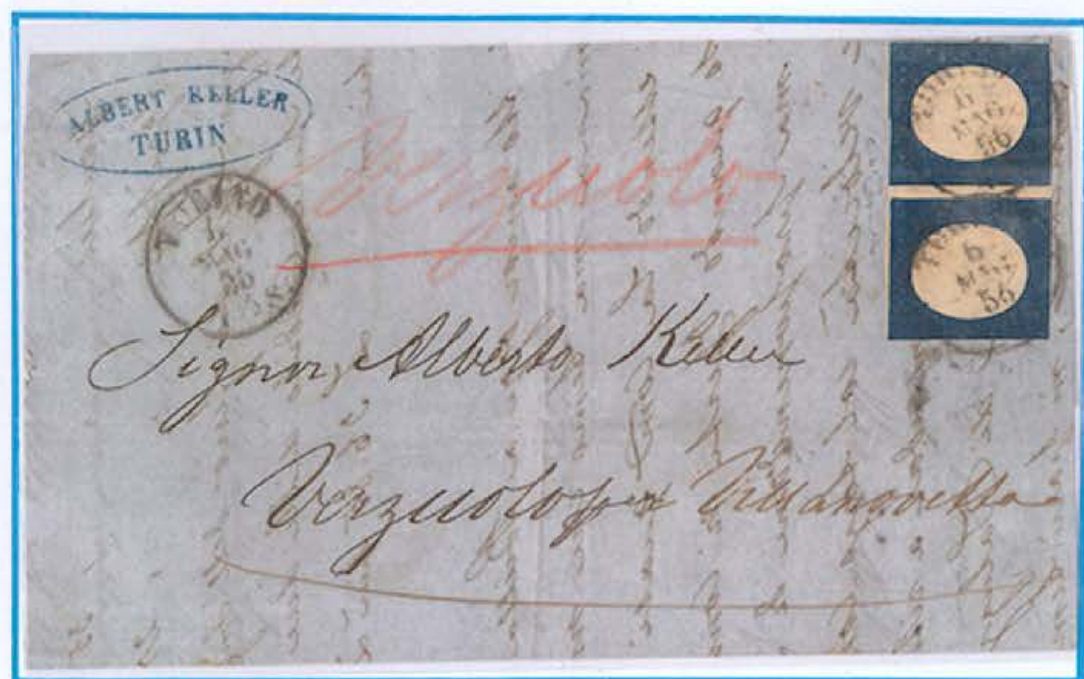 ALBERT KELLER
TURIN
TORINO
6
MAG
56
TORINO
6
MAG
56
TORINO
MAG
56
Verzuolo
Signor Alberto Keller
Verzuolo per Villanovetta